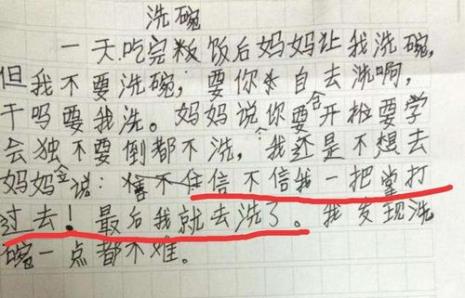 洗碗
一天吃完饭后妈妈让我洗碗,
但我不要洗碗,要你自去洗啊,
干吗要我洗。妈妈说你要含开拉要学
会独不要倒都不洗,我还是不想去
妈妈说:信不信我一把掌打
过去!最后我就去洗了。我发现洗
碗一点都不难。